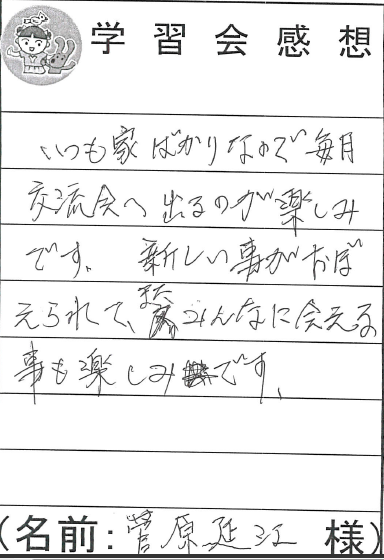 学習会感想
いつも家ばかりなので毎月
交流会へ出るのが楽しみ
です。新しい事がおぼ
えられて、又みんなに会える
事も楽しみです。
(名前:菅原延江様)